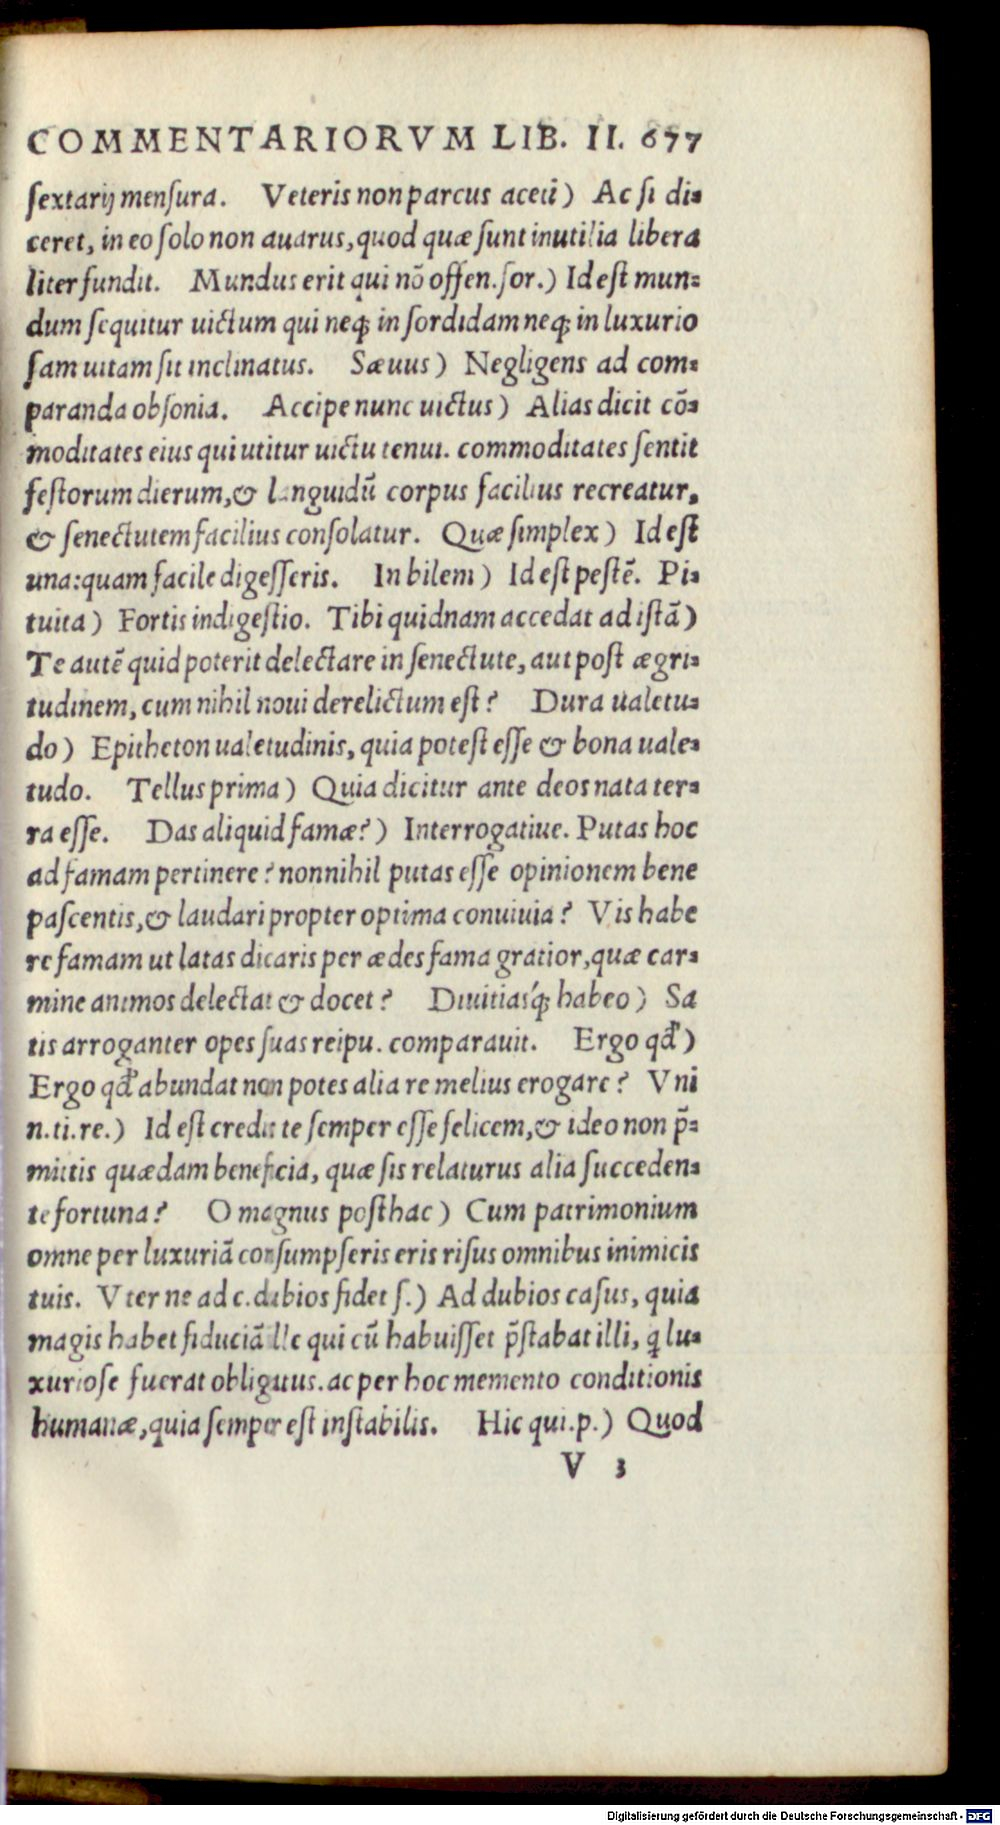 COMMENTARIORVM LIB. II. 677
sextarij mensura. Veteris non parcus aceti) Ac si di-
ceret, in eo solo non auarus, quod quæ sunt inutilia libera
liter fundit. Mundus erit qui nõ offen.sor.) Id est mun=
dum sequitur uictum qui neq; in sordidam neq; in luxurio
sam uitam sit inclinatus. Sæuus) Negligens ad com-
paranda obsonia. Accipe nunc uictus) Alias dicit cõ-
moditates eius qui utitur uictu tenui. commoditates sentit
festorum dierum, & languidũ corpus facilius recreatur,
& senectutem facilius consolatur. Quæ simplex) Id est
una: quam facile digesseris. In bilem) Id est pestẽ. Pi-
tuita) Fortis indigestio. Tibi quidnam accedat ad istã)
Te autẽ quid poterit delectare in senectute, aut post ægri-
tudinem, cum nihil noui derelictum est? Dura ualetu-
do) Epitheton ualetudinis, quia potest esse & bona uale-
tudo. Tellus prima) Quia dicitur ante deos nata ter-
ra esse. Das aliquid famæ?) Interrogatiue. Putas hoc
ad famam pertinere? nonnihil putas esse opinionem bene
pascentis, & laudari propter optima conuiuia? Vis habe
re famam ut latas dicaris per ædes fama gratior, quæ car-
mine animos delectat & docet? Diuitiasq́; habeo) Sa
tis arroganter opes suas reipu. comparauit. Ergo qđ)
Ergo qđ abundat non potes alia re melius erogare? Vni
n.ti.re.) Id est credis te semper esse felicem, & ideo non p̃=
mittis quædam beneficia, quæ sis relaturus alia succeden-
te fortuna? O magnus posthac) Cum patrimonium
omne per luxuriã consumpseris eris risus omnibus inimicis
tuis. Vter ne ad c.dubios fidet s.) Ad dubios casus, quia
magis habet fiduciã ille qui cũ habuisset p̃stabat illi, q̃ lu-
xuriose fuerat obliguus. ac per hoc memento conditionis
humanæ, quia semper est instabilis. Hic qui.p.) Quod
V 3
Digitalisierung gefördert durch die Deutsche Forschungsgemeinschaft - DFG